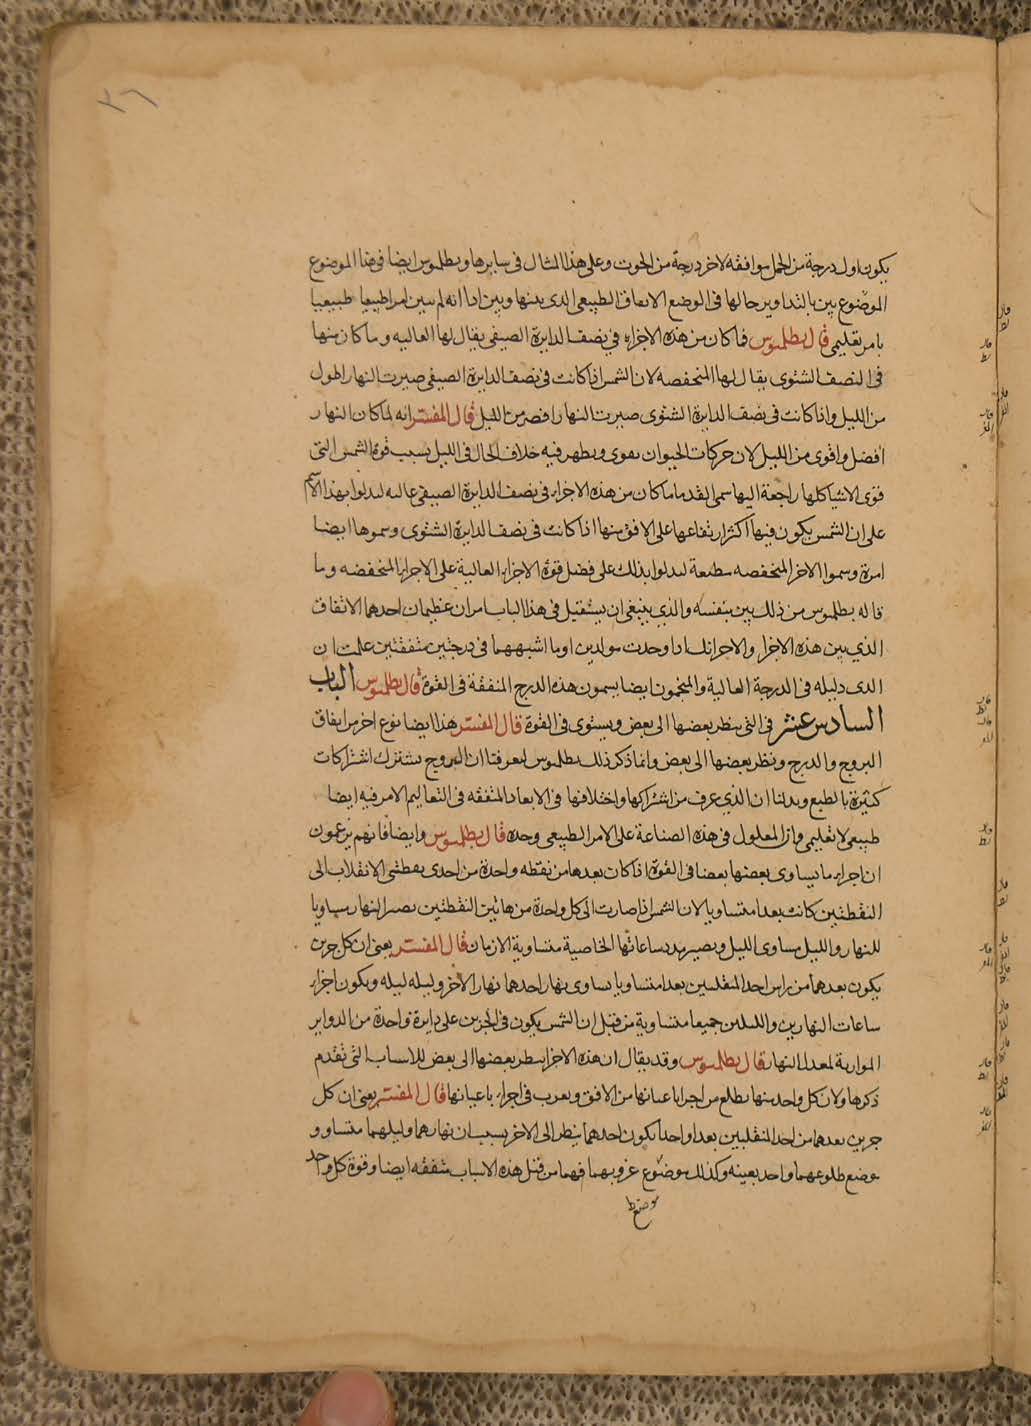 ٢٦
يكون اول درجة من الحمل موافقه لاخر درجة من الحوت وعلى هذا المثال فى سايرها وبطلموس ايضا فى هذا الموضوع
الموضوع بين بالتداوير حالها فى الوضع الاتفاق الطبيعى الذى بينها وبين اذا انه لم يبين امرا طبيعيا طبيعيا
بامر تعليمى قال بطلميوس فما كان من هذه الاجزاء فى نصف الدايرة الصيفى يقال لها العاليه وما كان منها
فى النصف الشتوى يقال لها المنخفضه لان الشمس اذا كانت فى نصف الدايرة الصيفى صيرت النهار اطول
من الليل واذا كانت فى نصف الدايرة الشتوى صيرت النهار اقصر من الليل قال المفسر انه لما كان النهار
افضل واقوى من الليل لان حركات الحيوان تقوى ويظهر فيه خلاف الحال فى الليل بسبب قوة الشمس التى
قوى الاشيا كلها راجعة اليها سمى القدما ما كان من هذه الاجزاء فى نصف الدايرة الصيفى عاليه ليدلوا بهذا الاسم
على ان الشمس يكون فيها اكثر ارتفاعها على الافق منها اذا كانت فى نصف الدايرة الشتوى وسموها ايضا
امرة وسموا الاجزا المنخفضه مطيعة ليدلوا بذلك على فضل قوة الاجزاء العالية على الاجزاء المنخفضه وما
قاله بطلموس من ذلك بين بنفسه والذي ينبغى ان يستقبل فى هذا الباب امران عظيمان احدهما الاتفاق
الذي بين هذه الاجزا والاخر انك اذا وجدت مولدين او ما اشبههما فى درجتين متفقتين علمت ان
الذى دليله فى الدرجة العالية والمنجمون ايضا يسمون هذه الدرج المتفقة فى القوة قال بطلميوس الباب
السادس عشر فى التى ينظر بعضها الى بعض ويستوى فى القوة قال المفسر هذا ايضا نوع اخر من اتفاق
البروج والدرج ونظر بعضها الى بعض وانما ذكر ذلك بطلموس ليعرفنا ان البروج تشترك اشتراكات
كثيرة بالطبع ويدلنا ان الذي عرف من اشتراكها واختلافها فى الابعاد المتفقه فى التعاليم الامر فيه ايضا
طبيعى لا تعليمى وان المعلول فى هذه الصناعة على الامر الطبيعى وحده قال بطلميوس وايضا فانهم يزعمون
ان اجزاء ما يساوى بعضها بعضا فى القوة اذا كان بعدها من نقطه واحدة من احدى نقطتى الانقلاب الى
النقطتين كانت بعدا متساويا لان الشمس اذا صارت الى كل واحدة من هاتين النقطتين يصير النهار مساويا
للنهار والليل مساوى الليل ويصير مدد ساعاتها الخاصية متساوية الازمان قال المفسر يعنى ان كل جزين
يكون بعدهما من راس احد المنقلبين بعدا متساويا يساوى نهار احدهما نهار الاخر وليله ليله ويكون اجزاء
ساعات النهارين والليلين جميعا متساوية من قبل ان الشمس يكون فى الجزين على دايرة واحدة من الدواير
الموازية لمعدل النهار قال بطلميوس وقد يقال ان هذه الاجزا ينظر بعضها الى بعض للاسباب التى تقدم
ذكرها ولان كل واحد منها يطلع من اجزا باعيانها من الافق ويغرب فى اجزاء باعيانها قال المفسر يعنى ان كل
جزين بعدهما من احد المنقلبين بعدا واحدا يكون احدهما ينظر الى الاخر بسبب ان نهارهما وليلهما متساو و
موضع طلوعهما واحد بعينه وكذلك موضوع غروبهما فهما من قبل هذه الاسباب متفقه ايضا وقوة كل واحد
موضع ط